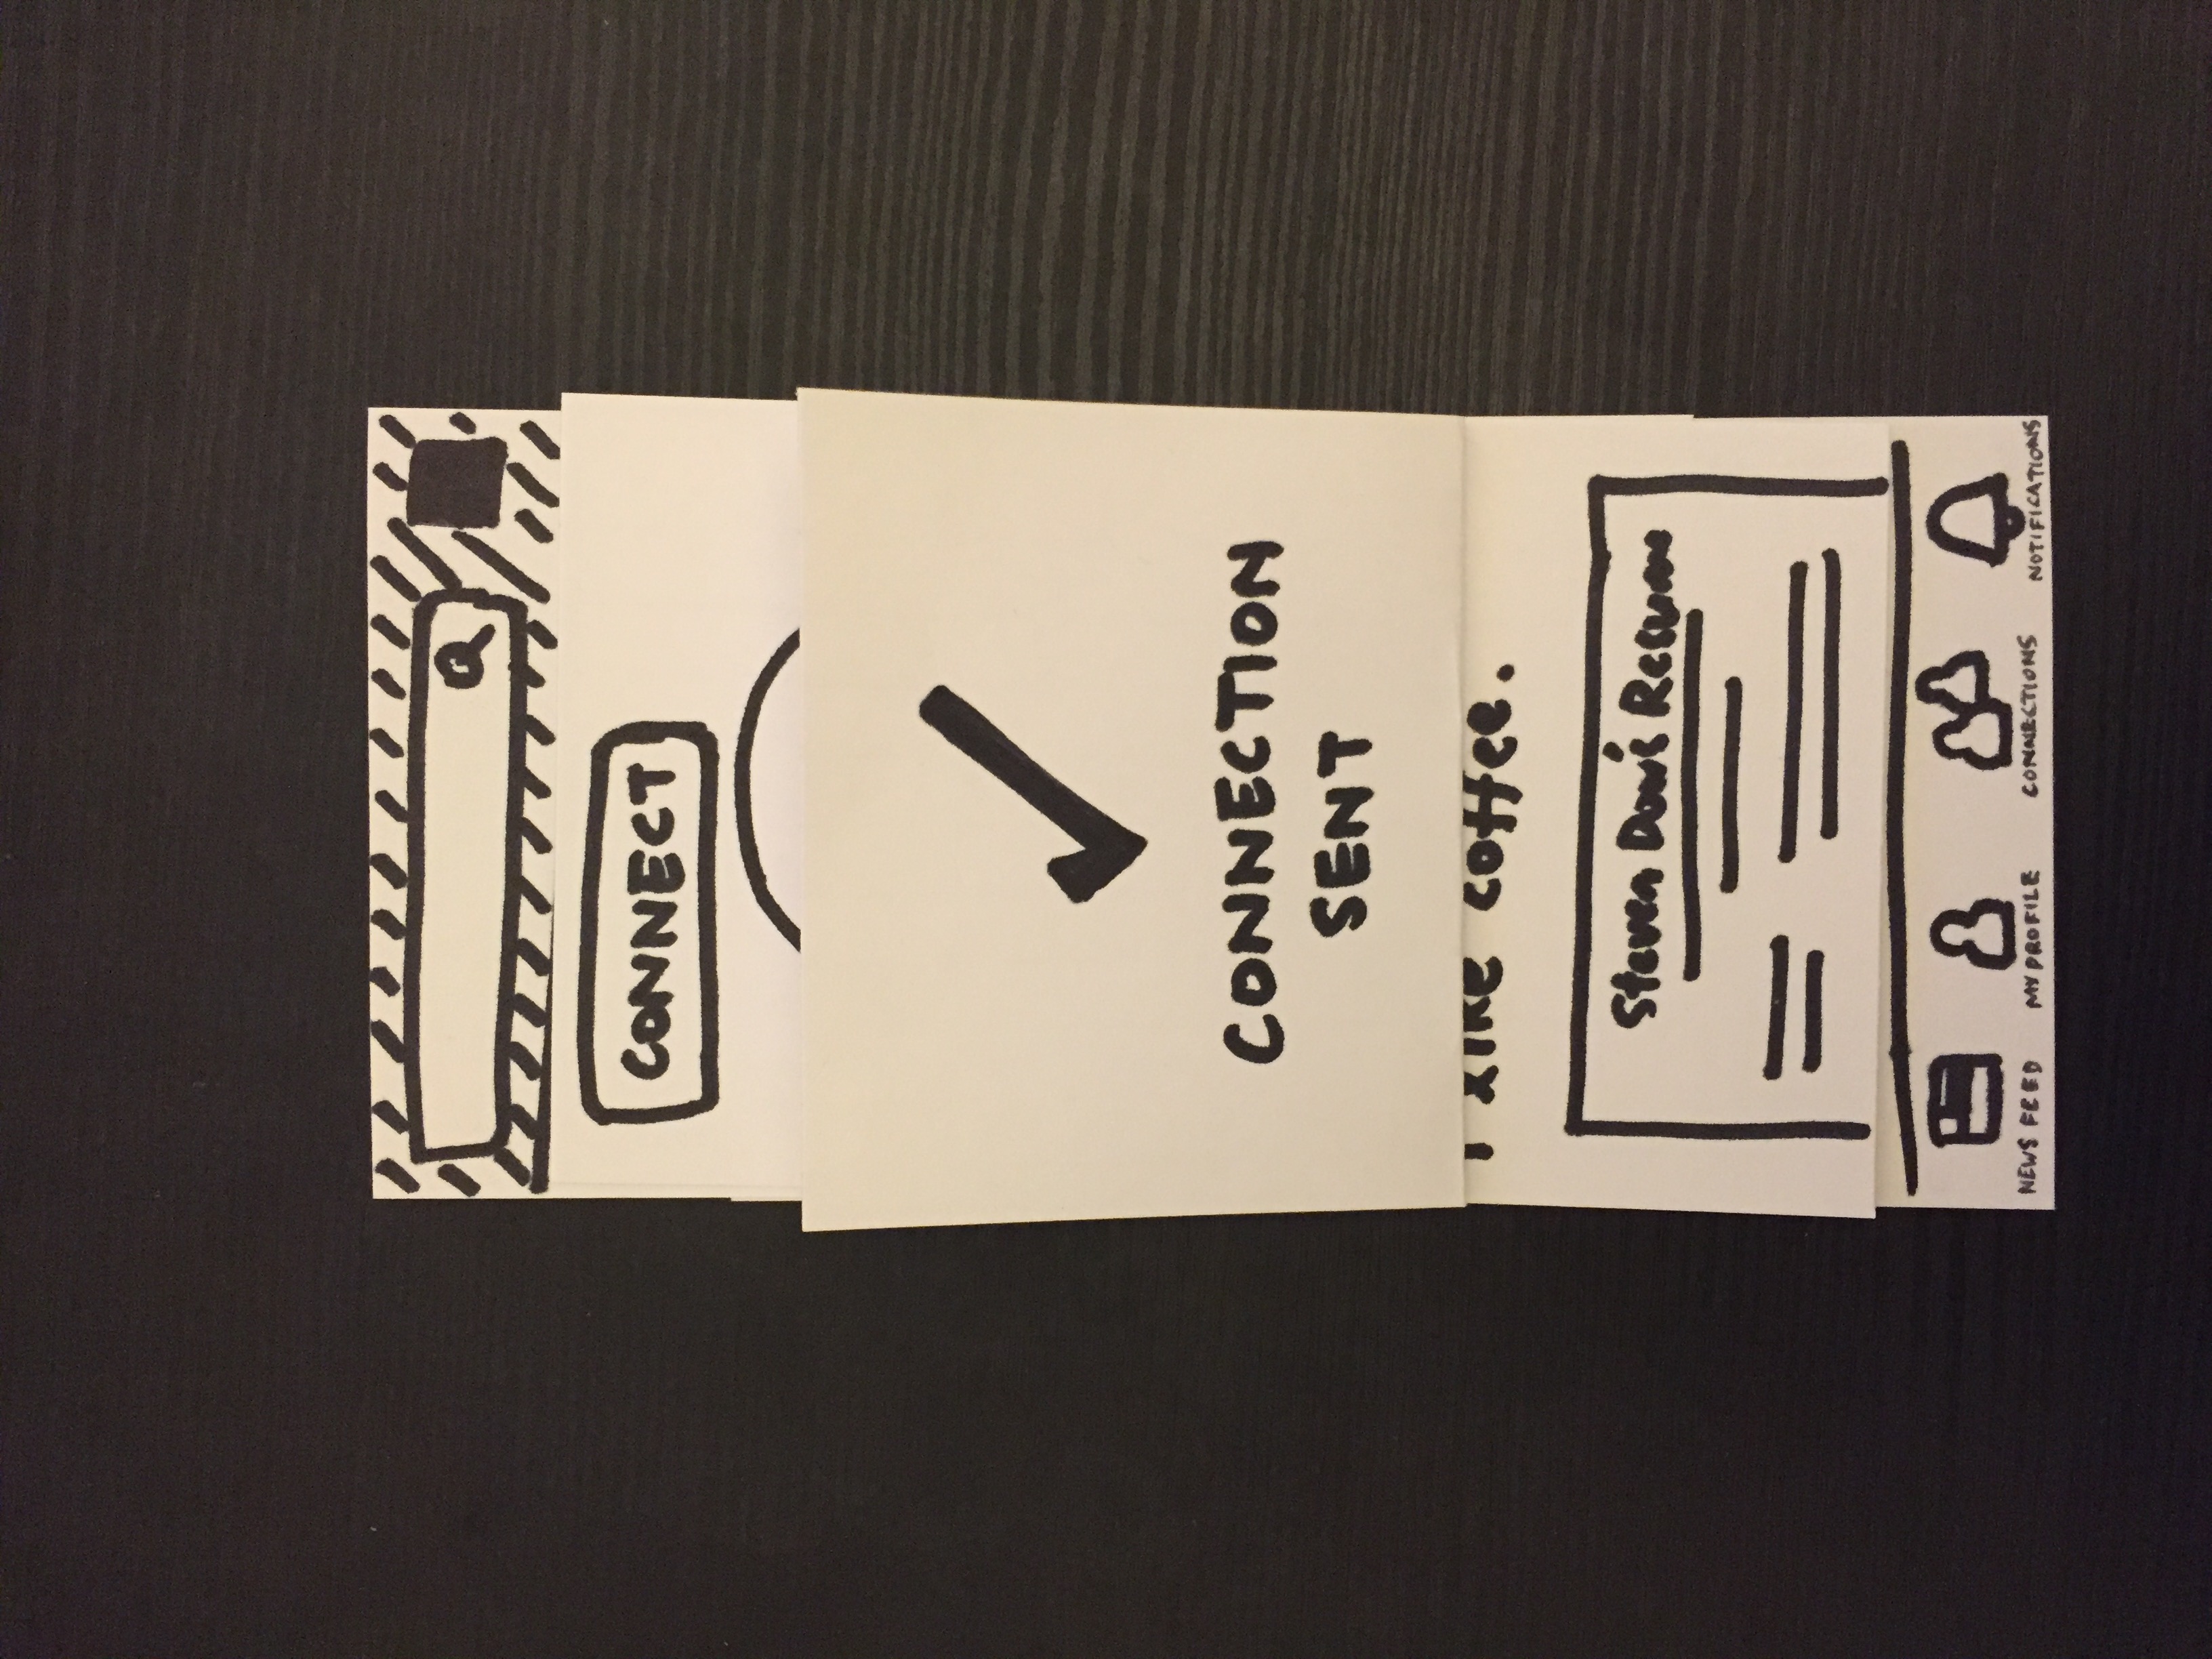 CONNECT
CONNECTION
SENT
I like coffee.
Steven Dow's Resume
NEWS FEED
MY PROFILE
CONNECTIONS
NOTIFICATIONS